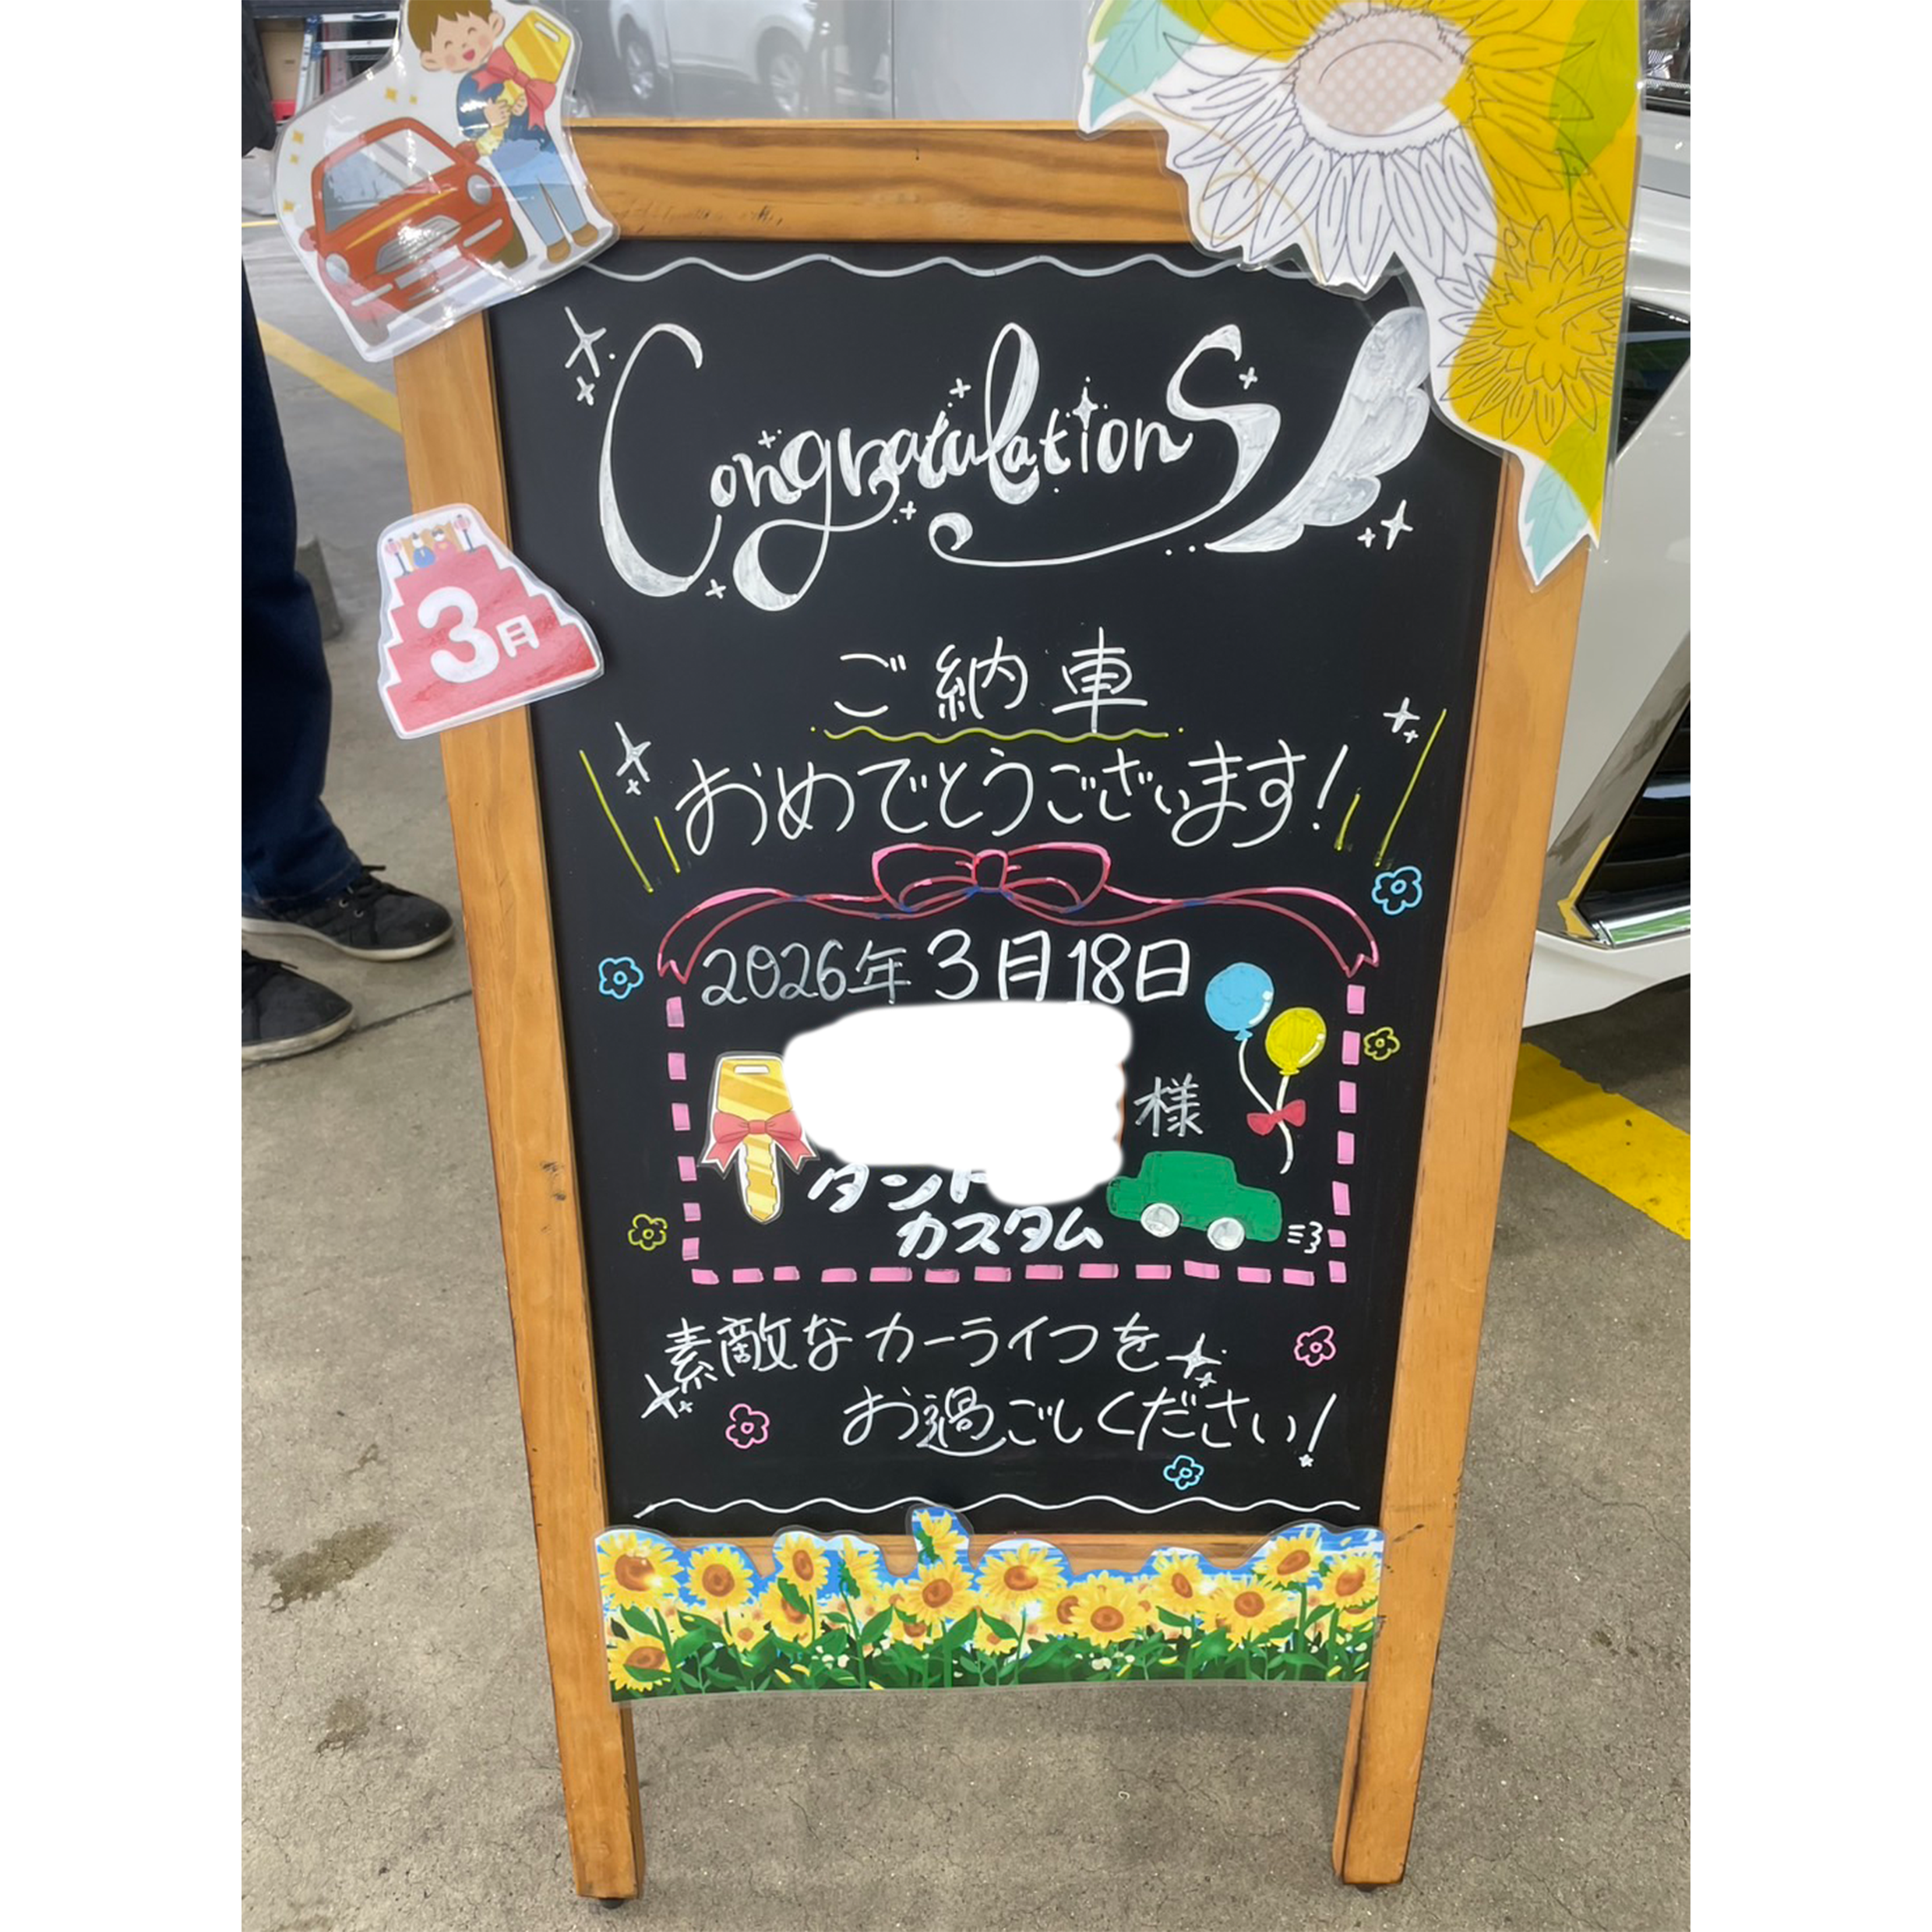 Congratulations
3月
ご納車
おめでとうございます!
2026年3月18日
様
タント
カスタム
素敵なカーライフを
お過ごしください!